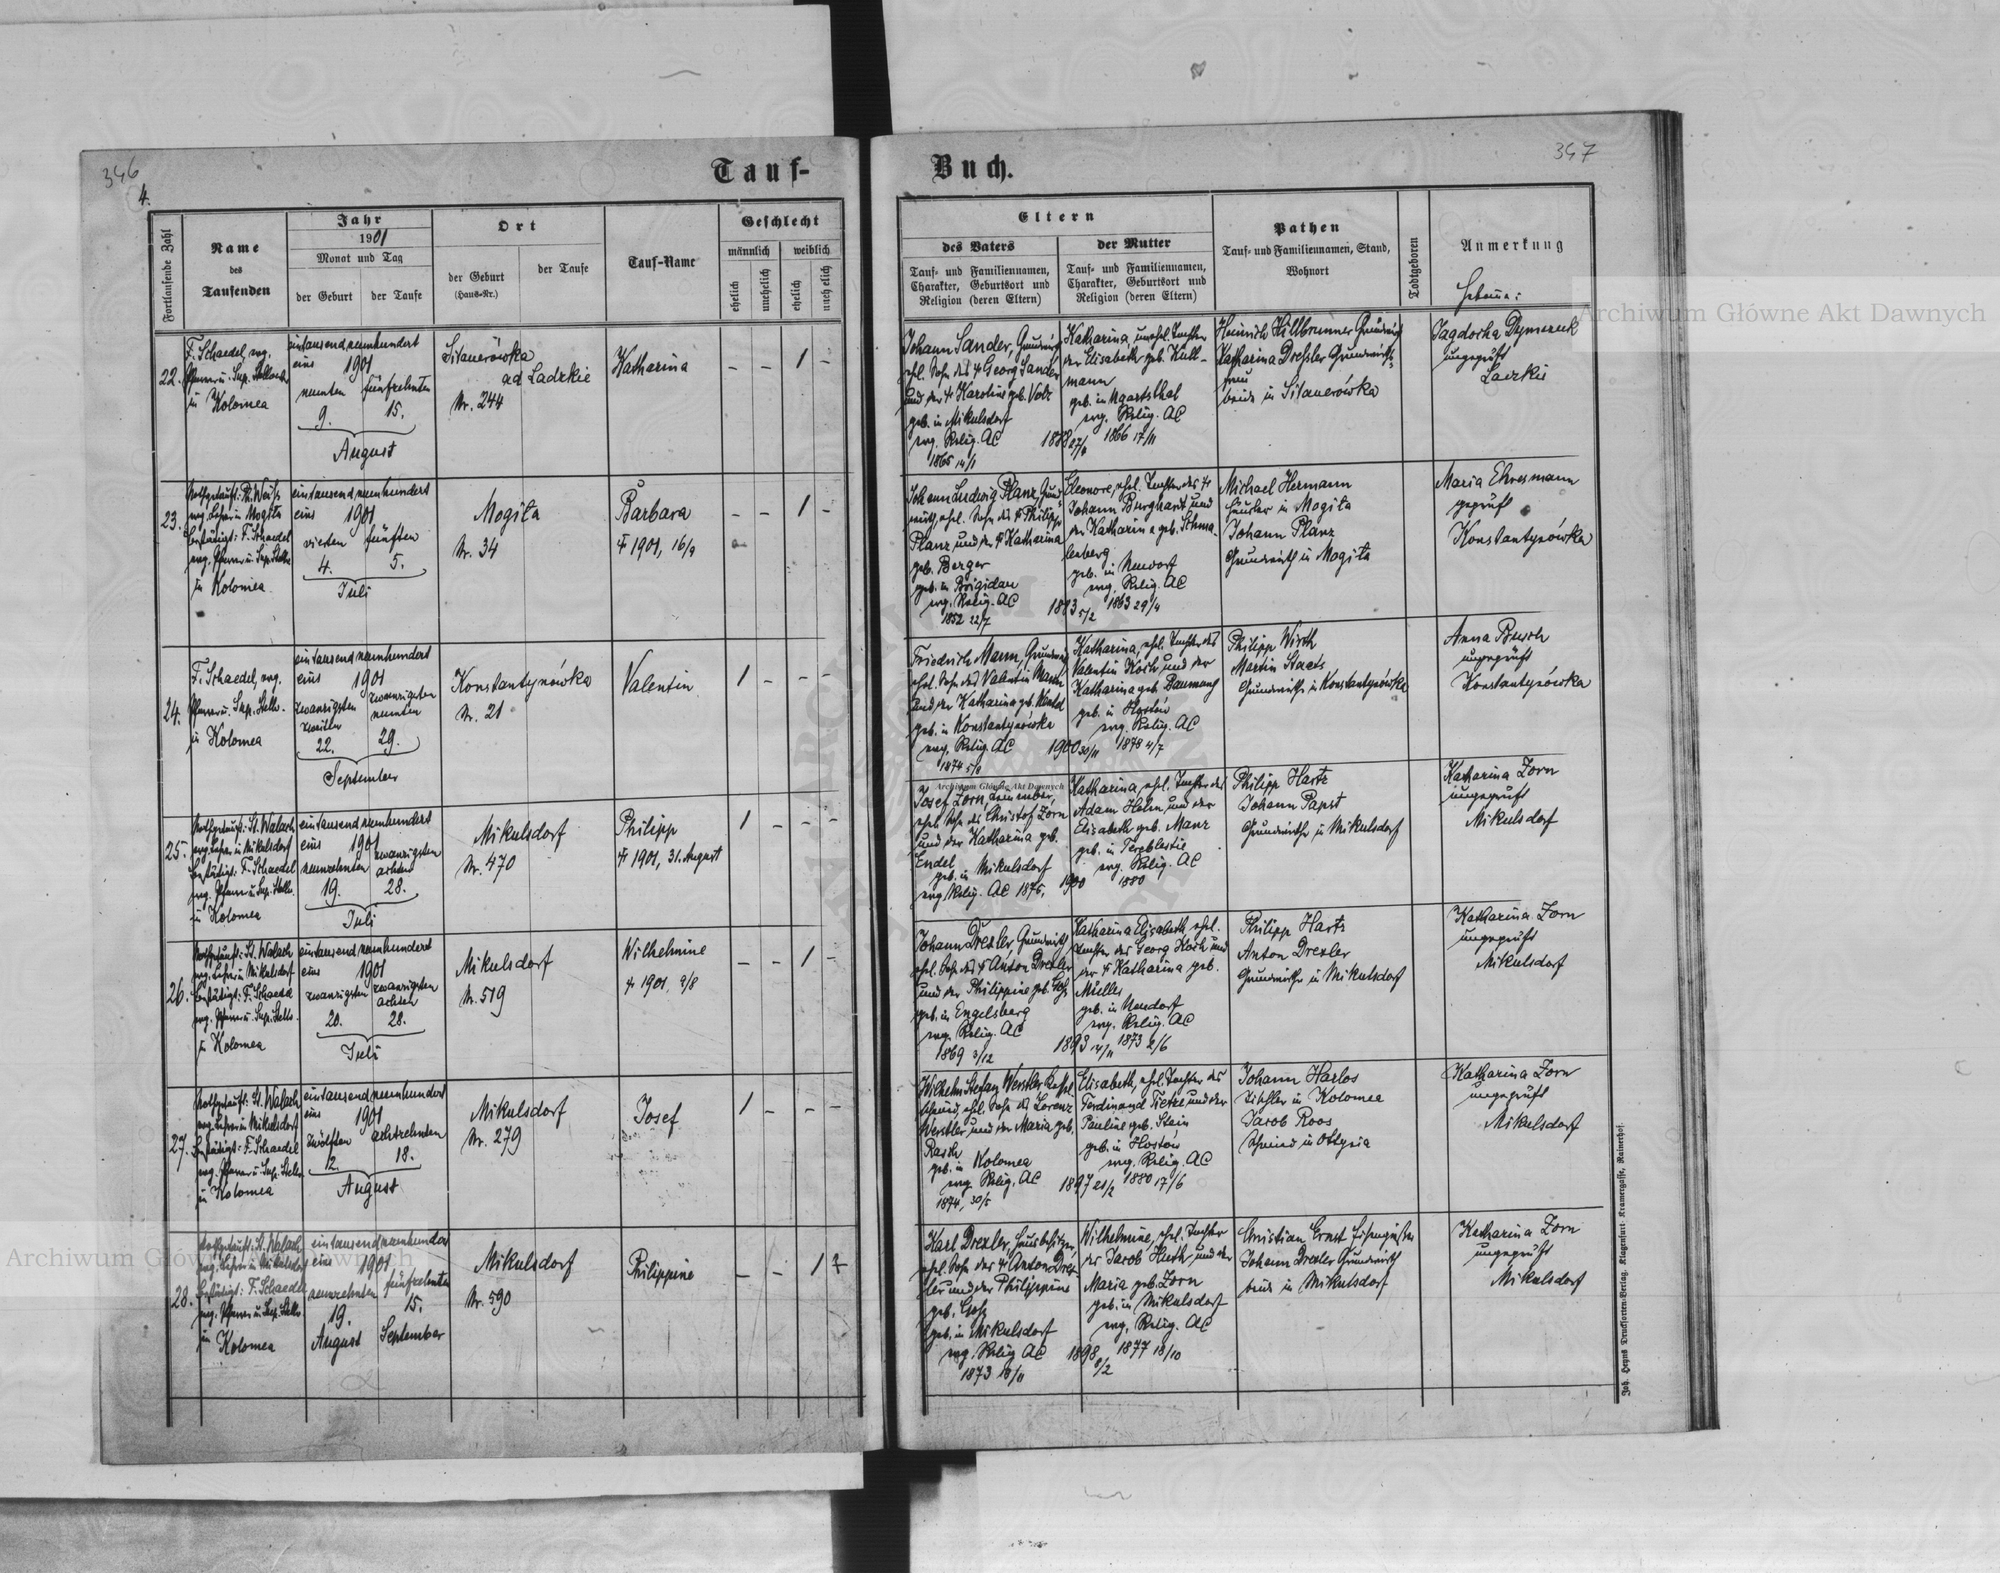 346
4.
Tauf-
Fortlaufende Zahl
Name
des
Taufenden
Jahr
1901
Monat und Tag
der Geburt
der Taufe
Ort
der Geburt
(Haus-Nr.)
der Taufe
Tauf-Name
Geschlecht
männlich
weiblich
ehelich
unehelich
ehelich
unehelich
22.
F. Schaedel, evg.
Pfarrer u. Sup. Stellv.
in Kolomea
eintausend neunhundert
eins 1901
neunten fünfzehnten
9. 15.
August
ad Ladzkie
Nr. 244
Katharina
– – 1 –
23.
Nothgetauft: Ph. Weiß
evg. Lehrer in Mogila
Bestätigt: F. Schaedel
evg. Pfarrer u. Sup. Stellv.
in Kolomea
eintausend neunhundert
eins 1901
vierten fünften
4. 5.
Juli
Mogila
Nr. 34
Barbara
† 1901, 16/9
– – 1 –
24.
F. Schaedel, evg.
Pfarrer u. Sup. Stellv.
in Kolomea
eintausend neunhundert
eins 1901
zwanzigsten zwanzigsten
zweiten neunten
22. 29.
September
Konstantynówka
Nr. 21
Valentin
1 – – –
25.
Nothgetauft: St. Walach
evg. Lehrer in Mikulsdorf
Bestätigt: F. Schaedel
evg. Pfarrer u. Sup. Stellv.
in Kolomea
eintausend neunhundert
eins 1901
neunzehnten zwanzigsten
achten
19. 28.
Juli
Mikulsdorf
Nr. 470
Philipp
† 1901, 31. August
1 – – –
26.
Nothgetauft: St. Walach
evg. Lehrer in Mikulsdorf
Bestätigt: F. Schaedel
evg. Pfarrer u. Sup. Stellv.
in Kolomea
eintausend neunhundert
eins 1901
zwanzigsten zwanzigsten
achten
20. 28.
Juli
Mikulsdorf
Nr. 519
Wilhelmine
† 1901, 2/8
– – 1 –
27.
Nothgetauft: St. Walach
evg. Lehrer in Mikulsdorf
Bestätigt: F. Schaedel
evg. Pfarrer u. Sup. Stellv.
in Kolomea
eintausend neunhundert
eins 1901
zwölften achtzehnten
12. 18.
August
Mikulsdorf
Nr. 279
Josef
1 – – –
28.
Nothgetauft: St. Walach
evg. Lehrer in Mikulsdorf
Bestätigt: F. Schaedel
evg. Pfarrer u. Sup. Stellv.
in Kolomea
eintausend neunhundert
eins 1901
neunzehnten fünfzehnten
19. 15.
August September
Mikulsdorf
Nr. 590
Philippine
– – 1
347
Buch.
Eltern
des Vaters
Tauf- und Familiennamen,
Charakter, Geburtsort und
Religion (deren Eltern)
der Mutter
Tauf- und Familiennamen,
Charakter, Geburtsort und
Religion (deren Eltern)
Pathen
Tauf- und Familiennamen, Stand,
Wohnort
Todtgeboren
Anmerkung
Hebamme:
Johann Sander, Grundwirth
ehel. Sohn des † Georg Sander
und der † Karoline geb. Volz
geb. in Mikulsdorf
evg. Relig. AC
1865 14/1
Katharina, unehel. Tochter
der Elisabeth geb. Kull-
mann
geb. in Ugartsthal
evg. Relig. AC
1866 17/11
Heinrich Hillbrunner Grundwirth
Katharina Drexler Grundwirths-
frau
beide in
ungeprüft
Ladzkie
Johann Ludwig Planz, Grund-
wirth, ehel. Sohn des † Philipp
Planz und der † Katharina
geb. Berger
geb. in Brigidau
evg. Relig. AC
1852 22/7
Eleonore, ehel. Tochter des †
Johann Burghardt und
der Katharina geb. Schma-
lenberg
geb. in Neudorf
evg. Relig. AC
1883 5/2 1863 29/4
Michael Hermann
Häusler in Mogila
Johann Planz
Grundwirth in Mogila
Maria Ehresmann
geprüft
Konstantynówka
Friedrich Mann, Grundwirth
ehel. Sohn des Valentin Mann
und der Katharina geb.
geb. in Konstantynówka
evg. Relig. AC
Katharina, ehel. Tochter des
Valentin Koch und der
Katharina geb. Baumung
geb. in Hostów
evg. Relig. AC
1900 30/11
Philipp Wirth
Martin Staats
Grundwirthe in Konstantynówka
Anna Busch
ungeprüft
Konstantynówka
Josef Zorn,
ehel. Sohn des Christof Zorn
und der Katharina geb.
Endel
geb. in Mikulsdorf
evg. Relig. AC 1875.
Katharina, ehel. Tochter des
Adam Hehn und der
Elisabeth geb. Manz
geb. in Tereblestie
evg. Relig. AC
1900 1880
Philipp Hartz
Johann Papst
Grundwirthe in Mikulsdorf
Katharina Zorn
ungeprüft
Mikulsdorf
Johann Drexler Grundwirth
ehel. Sohn des † Anton Drexler
und der Philippine geb.
geb. in Engelsberg
evg. Relig. AC
1869 3/12
Katharina Elisabeth, ehel.
Tochter des Georg Koch und
der † Katharina geb.
Müller
geb. in Neudorf
evg. Relig. AC
1873 2/6
Philipp Hartz
Anton Drexler
Grundwirthe in Mikulsdorf
Katharina Zorn
ungeprüft
Mikulsdorf
Wilhelm Stefan Werstler Kessel-
schmied, ehel. Sohn des Lorenz
Werstler und der Maria geb.
Rasch
geb. in Kolomea
evg. Relig. AC
1874, 30/5
Elisabeth, ehel. Tochter des
Ferdinand Tietze und der
Pauline geb. Stein
geb. in Hostów
evg. Relig. AC
1897 21/2 1880 17/6
Johann Harlos
Tischler in Kolomea
Jacob Roos
Schmied in Ottynia
Katharina Zorn
ungeprüft
Mikulsdorf
Karl Drexler, Hausbesitzer,
ehel. Sohn des † Anton Drex-
ler und der Philippine
geb.
geb. in Mikulsdorf
evg. Relig. AC
1873 18/11
Wilhelmine, ehel. Tochter
des Jacob Huth und der
Maria geb. Zorn
geb. in Mikulsdorf
evg. Relig. AC
1898 8/2 1877 18/10
Christian Ernst Eisengießer
Johann Drexler Grundwirth
beide in Mikulsdorf
Katharina Zorn
ungeprüft
Mikulsdorf
Joh. Heyns Drucksorten-Verlag, Klagenfurt, Kramergasse, Rainerhof.
Archiwum Główne Akt Dawnych
Archiwum Główne Akt Dawnych
Archiwum Główne Akt Dawnych